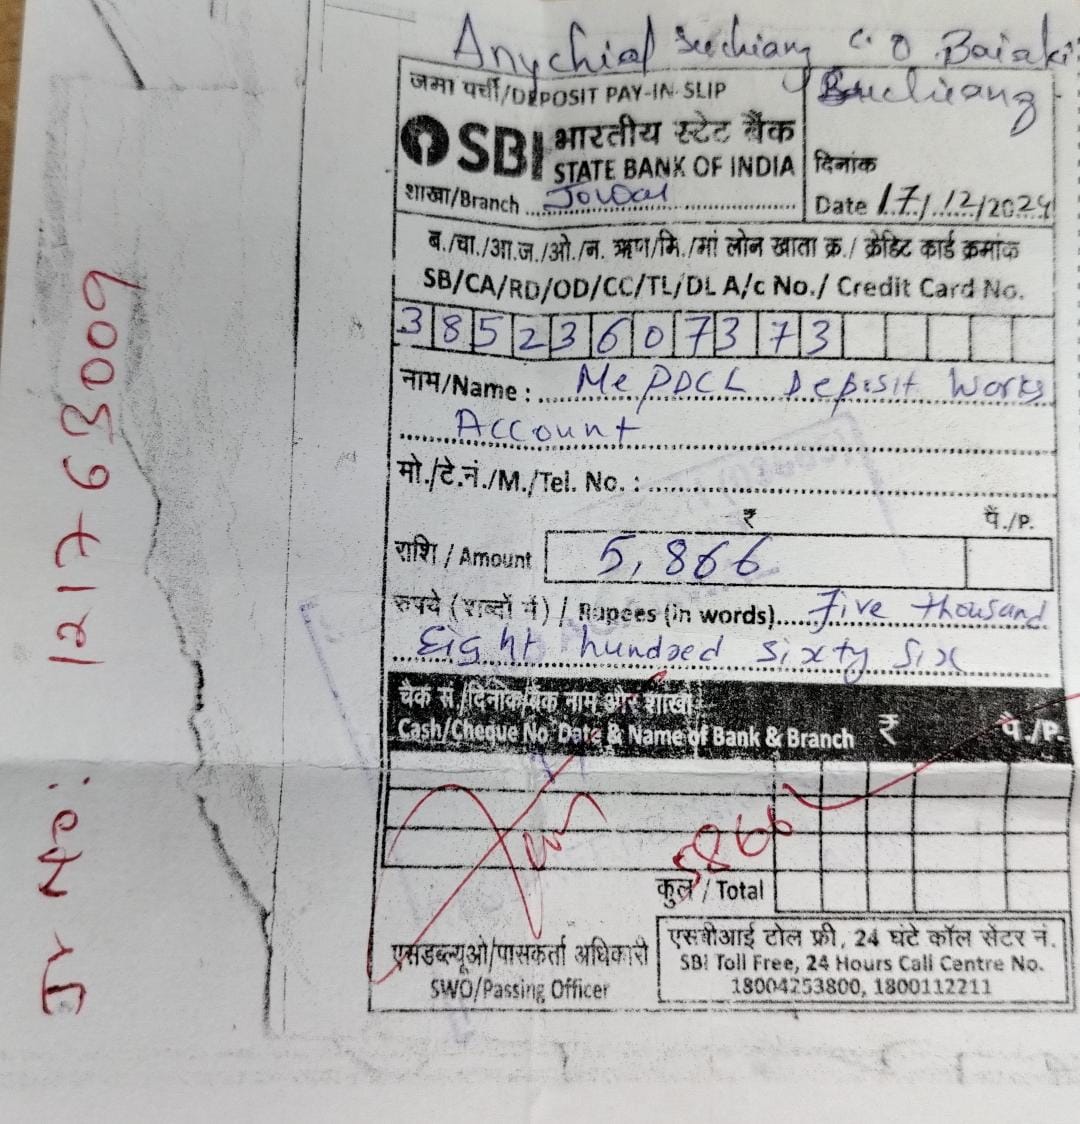 Anychial Suchiang C.O Baiaki
Suchiang
जमा पर्ची/DEPOSIT PAY-IN-SLIP
SBI भारतीय स्टेट बैंक
STATE BANK OF INDIA
शाखा/Branch Jowai
दिनांक
Date 17/12/2024
ब./चा./आ.ज./ओ./न. ऋण/मि./मां लोन खाता क्र./ क्रेडिट कार्ड क्रमांक
SB/CA/RD/OD/CC/TL/DL A/c No./ Credit Card No.
38523607373
नाम/Name : MePDCL Deposit Works
Account
मो./टे.नं./M./Tel. No. :
₹ पै./P.
राशि / Amount 5,866
रुपये (शब्दों में) / Rupees (in words) Five thousand
Eight hundred sixty six
चेक सं./दिनांक/बैंक नाम और शाखा
Cash/Cheque No. Date & Name of Bank & Branch ₹ पै./P.
5866
कुल / Total
एसडब्ल्यूओ/पासकर्ता अधिकारी
SWO/Passing Officer
एसबीआई टोल फ्री, 24 घंटे कॉल सेंटर नं.
SBI Toll Free, 24 Hours Call Centre No.
18004253800, 1800112211
Jr No: 121763009